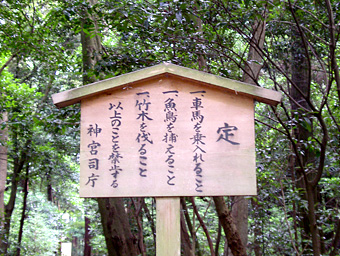 定
一車馬を乗入れること
一魚鳥を捕えること
一竹木を伐ること
以上のことを禁止する
神宮司庁